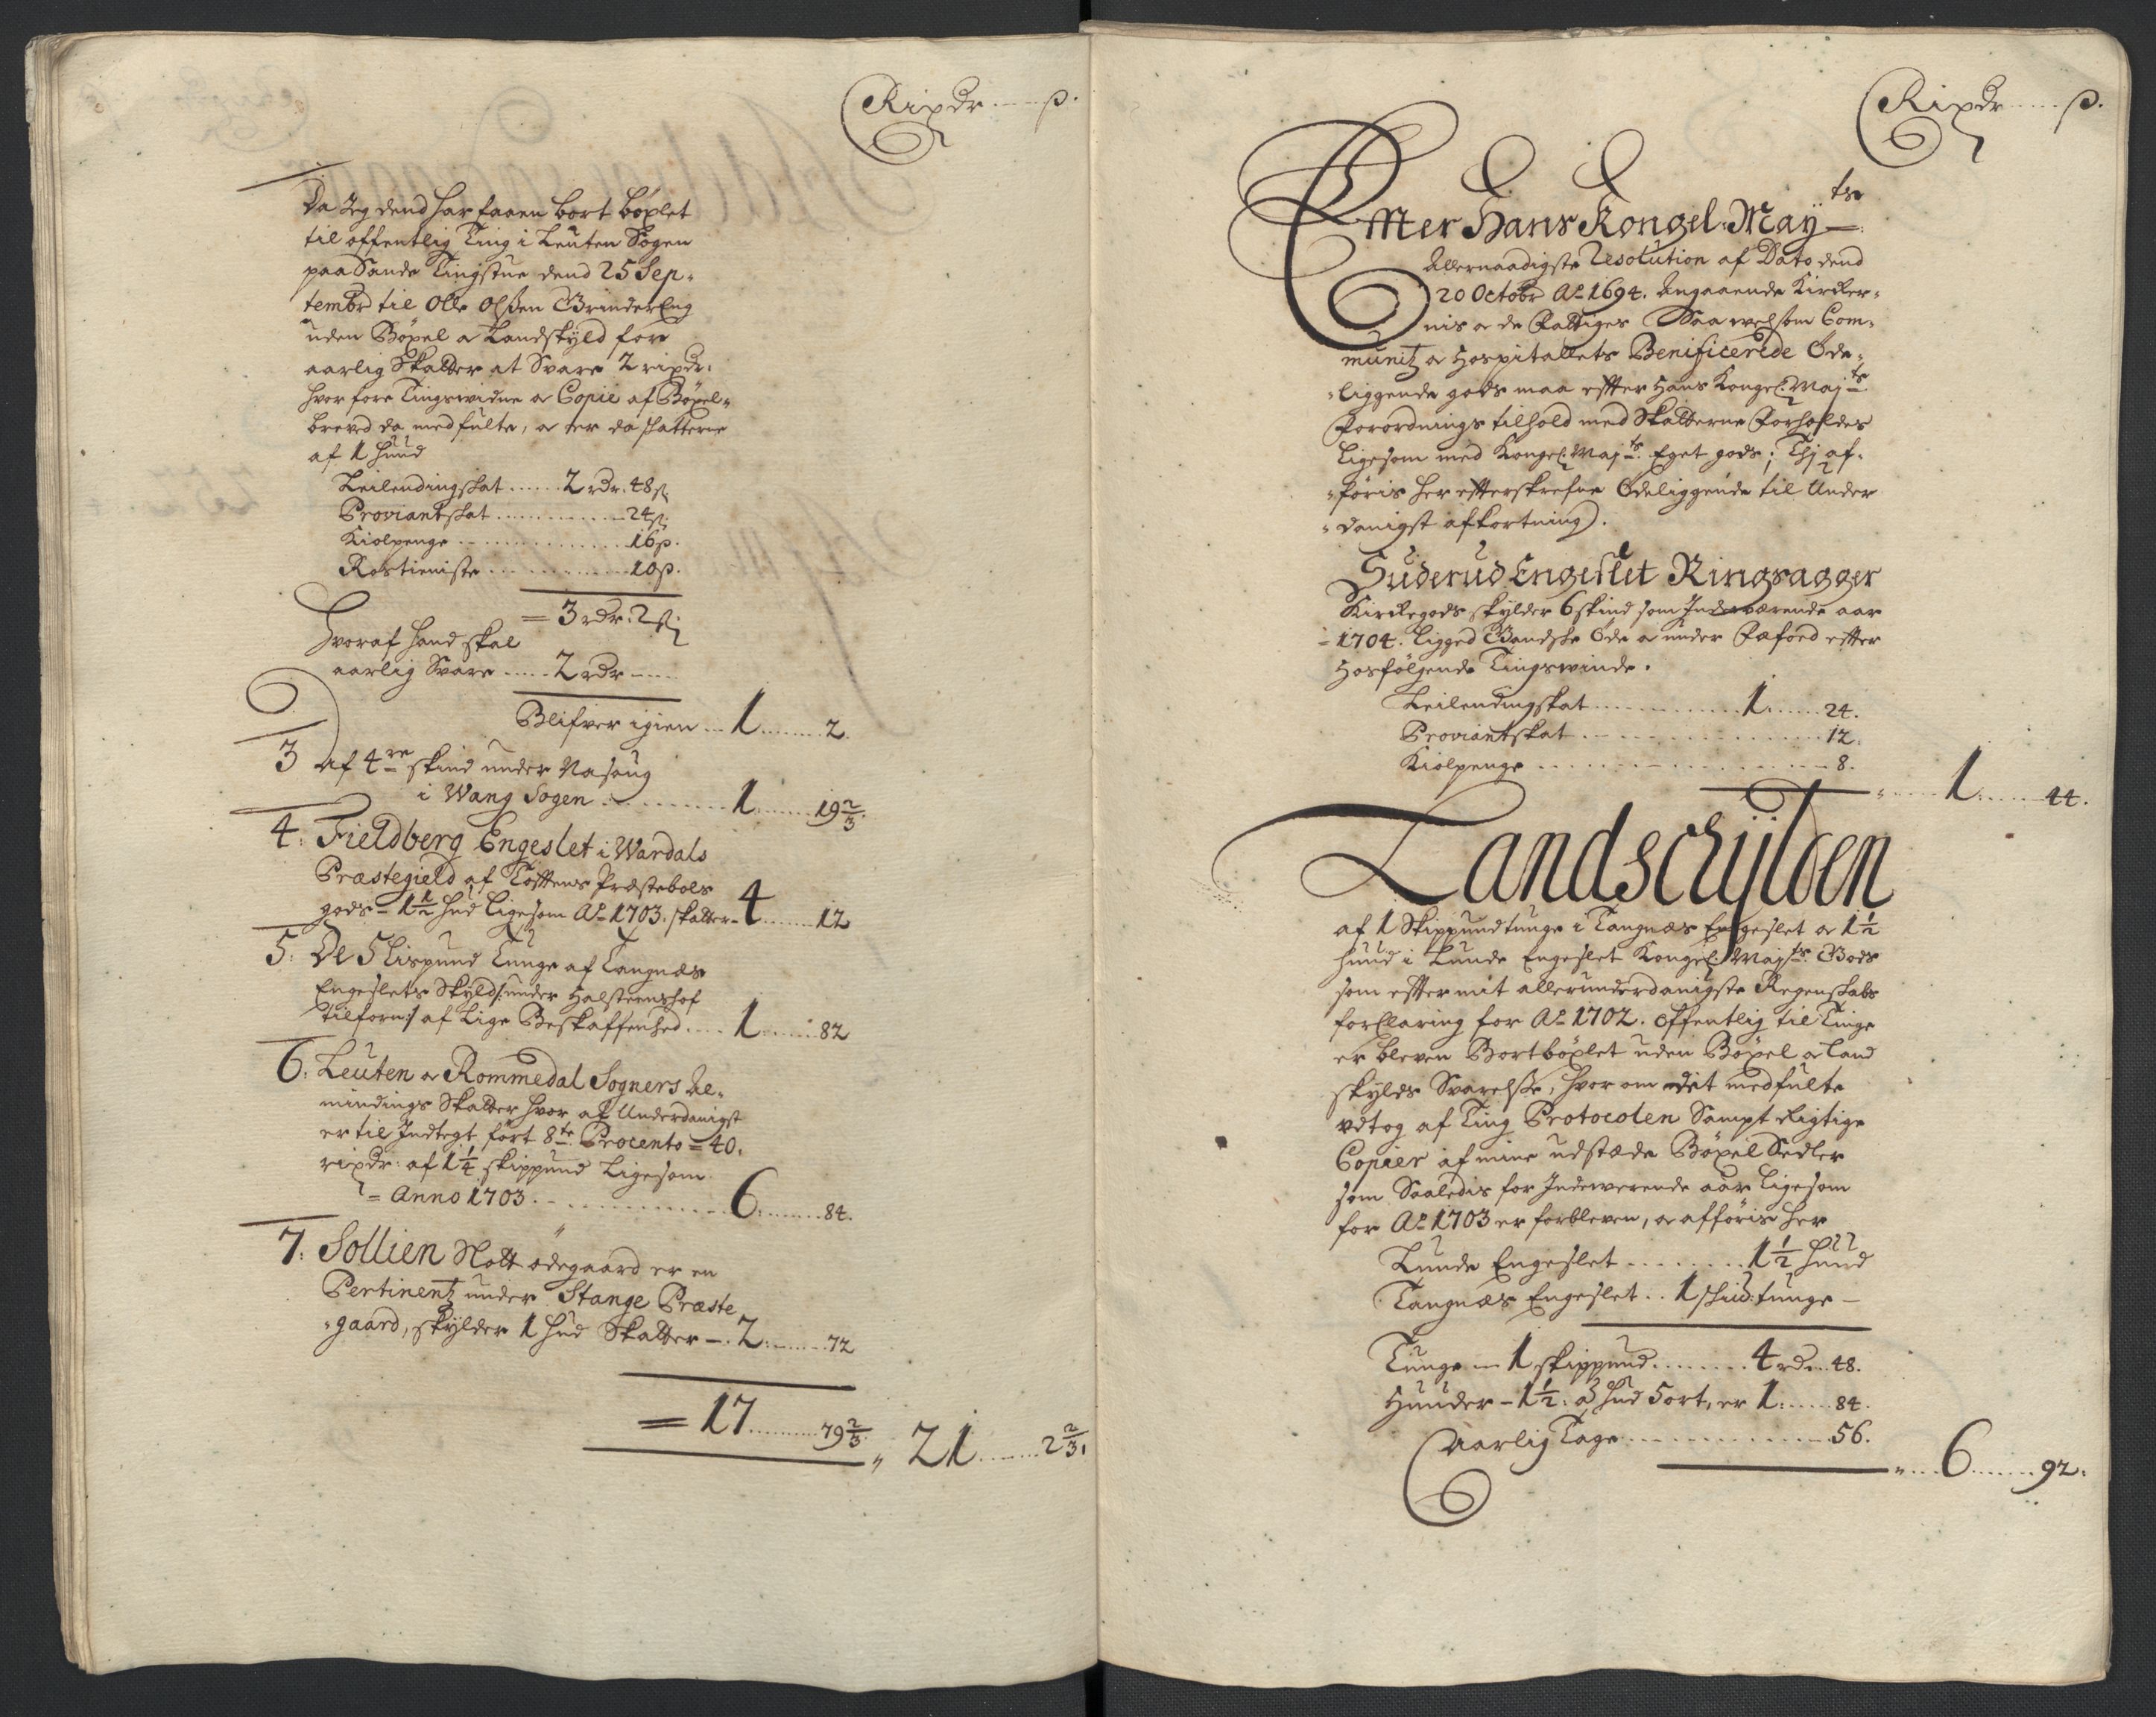 Rixdr ..... ß.
Da Jeg dend har faaen bort böxlet
til offentlig Ting i Leuten Sogen
paa Sande Tingstue dend 25 Sep-
tembr til Olle Olßen GrinderEng
uden Böxel a Landskyld for
aarlig Skatter at Svare 2 rixdr.
hvorfore Tingswidne a Copie af Böxel-
breved da medfulte, a er da skatterne
af 1 huud
Leilendingskat ...... 2 rdr. 48 ß
Proviantskat ............ 24 ß
Kiolpenge ............... 16 ß.
Rostieniste ............. 10 ß.
= 3 rdr: 2 ß
Hvoraf hand skal
aarlig Svare ..... 2 rdr
Blifver igien ... 1 ........ 2.
3 Af 4re skind under Nasaug
i Wang Sogen .......... 1 ....... 19 2/3.
4: Fieldberg Engeslet i Wardals
Præstegield af Tofftens Præstebols
gods - 1 1/2 hud Ligesom Ao 1703. skatter - 4 ....... 12
5: De 5 Lispund Tunge af Tangnæs
Engeslets Skyld /: under Halsteenshof
tilforn :/ af Lige Beskaffenhed .... 1 ....... 82
6: Leuten a Rommedal Sogners Al-
mindings Skatter hvor af Underdanigst
er til Indtegt fört 8te Procento = 40.
rixdr: af 1 1/4 skippund Ligesom
= Anno 1703. ............. 6 ........ 84.
7: Sollien Nott ödegaard er en
Pertinentz under Stange Præste
-gaard, skylder 1 hud Skatter -. 2 ....... 72
= 17 .......... 79 2/3.
" 21 ....... 2 2/3.
Rixdr ..... ß.
Effter Hans Kongel: Mayts:
Allernaadigste Resolution af Dato dend
20 Octobr Ao 1694. Angaaende Kirker-
nis a de Fattiges Saa vel som Com-
munitz a Hospitallets Benificerede Öde-
-liggende gods maa effter Hans Kongel: Majts
Forordnings tilhold med Skatterne Forholdes
Ligesom med Kongel: Majts Eget gods; Thj af-
-föris her effterskrefne Ödeliggende til Under
-danigst afkortning.
Suderud Engeslet Ringsagger
Kirkegods skylder 6 skind som Inderværende aar
- 1704. Ligged Gandske Öde a under Fæfoed effter
Hosfölgende Tingswinde.
Leilendingskat .............. 1 ...... 24.
Proviantskat ..................... 12.
Kiolpenge ....................... 8.
" ....... 1 ....... 44.
Landschylden
af 1 Skippund tunge i Tangnæs Engeslet a 1 1/2
huud i Lunde Engeslet Kongel: Majts: Gods
som effter mit allerunderdanigste Regenskabs
forklaring for Ao 1702. offentlig til Tinge
er bleven Bortböxlet uden Böxel a Land
skylds Svarelße, hvor om det medfulte
udtog af Ting Protocolen Sampt Rigtige
Copier af mine udstæde Böxel Sedler
som Saaledis for Indeværende aar Ligesom
for Ao 1703 er forbleven, a afföris her
Lunde Engeslet ........ 1 1/2 huud
Tangnæs Engeslet .. 1 skid: tunge -
Tunge - 1 skippund ........ 4 rd. 48.
Huuder - 1 1/2: a hud 5 ort, er 1. ..... 84.
Aarlig Tage .............. 56.
" .... 6 ....... 92.